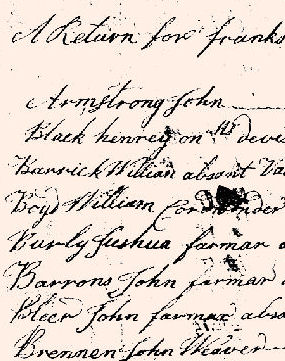 A Return for franks
Armstrong John
Black henrey on his deves
Barrick William absent Va
Boyd William Cordwonder
Burly Jushua farmar a
Barrons John farmar a
Bleer John farmar abse
Brennen John Weaver